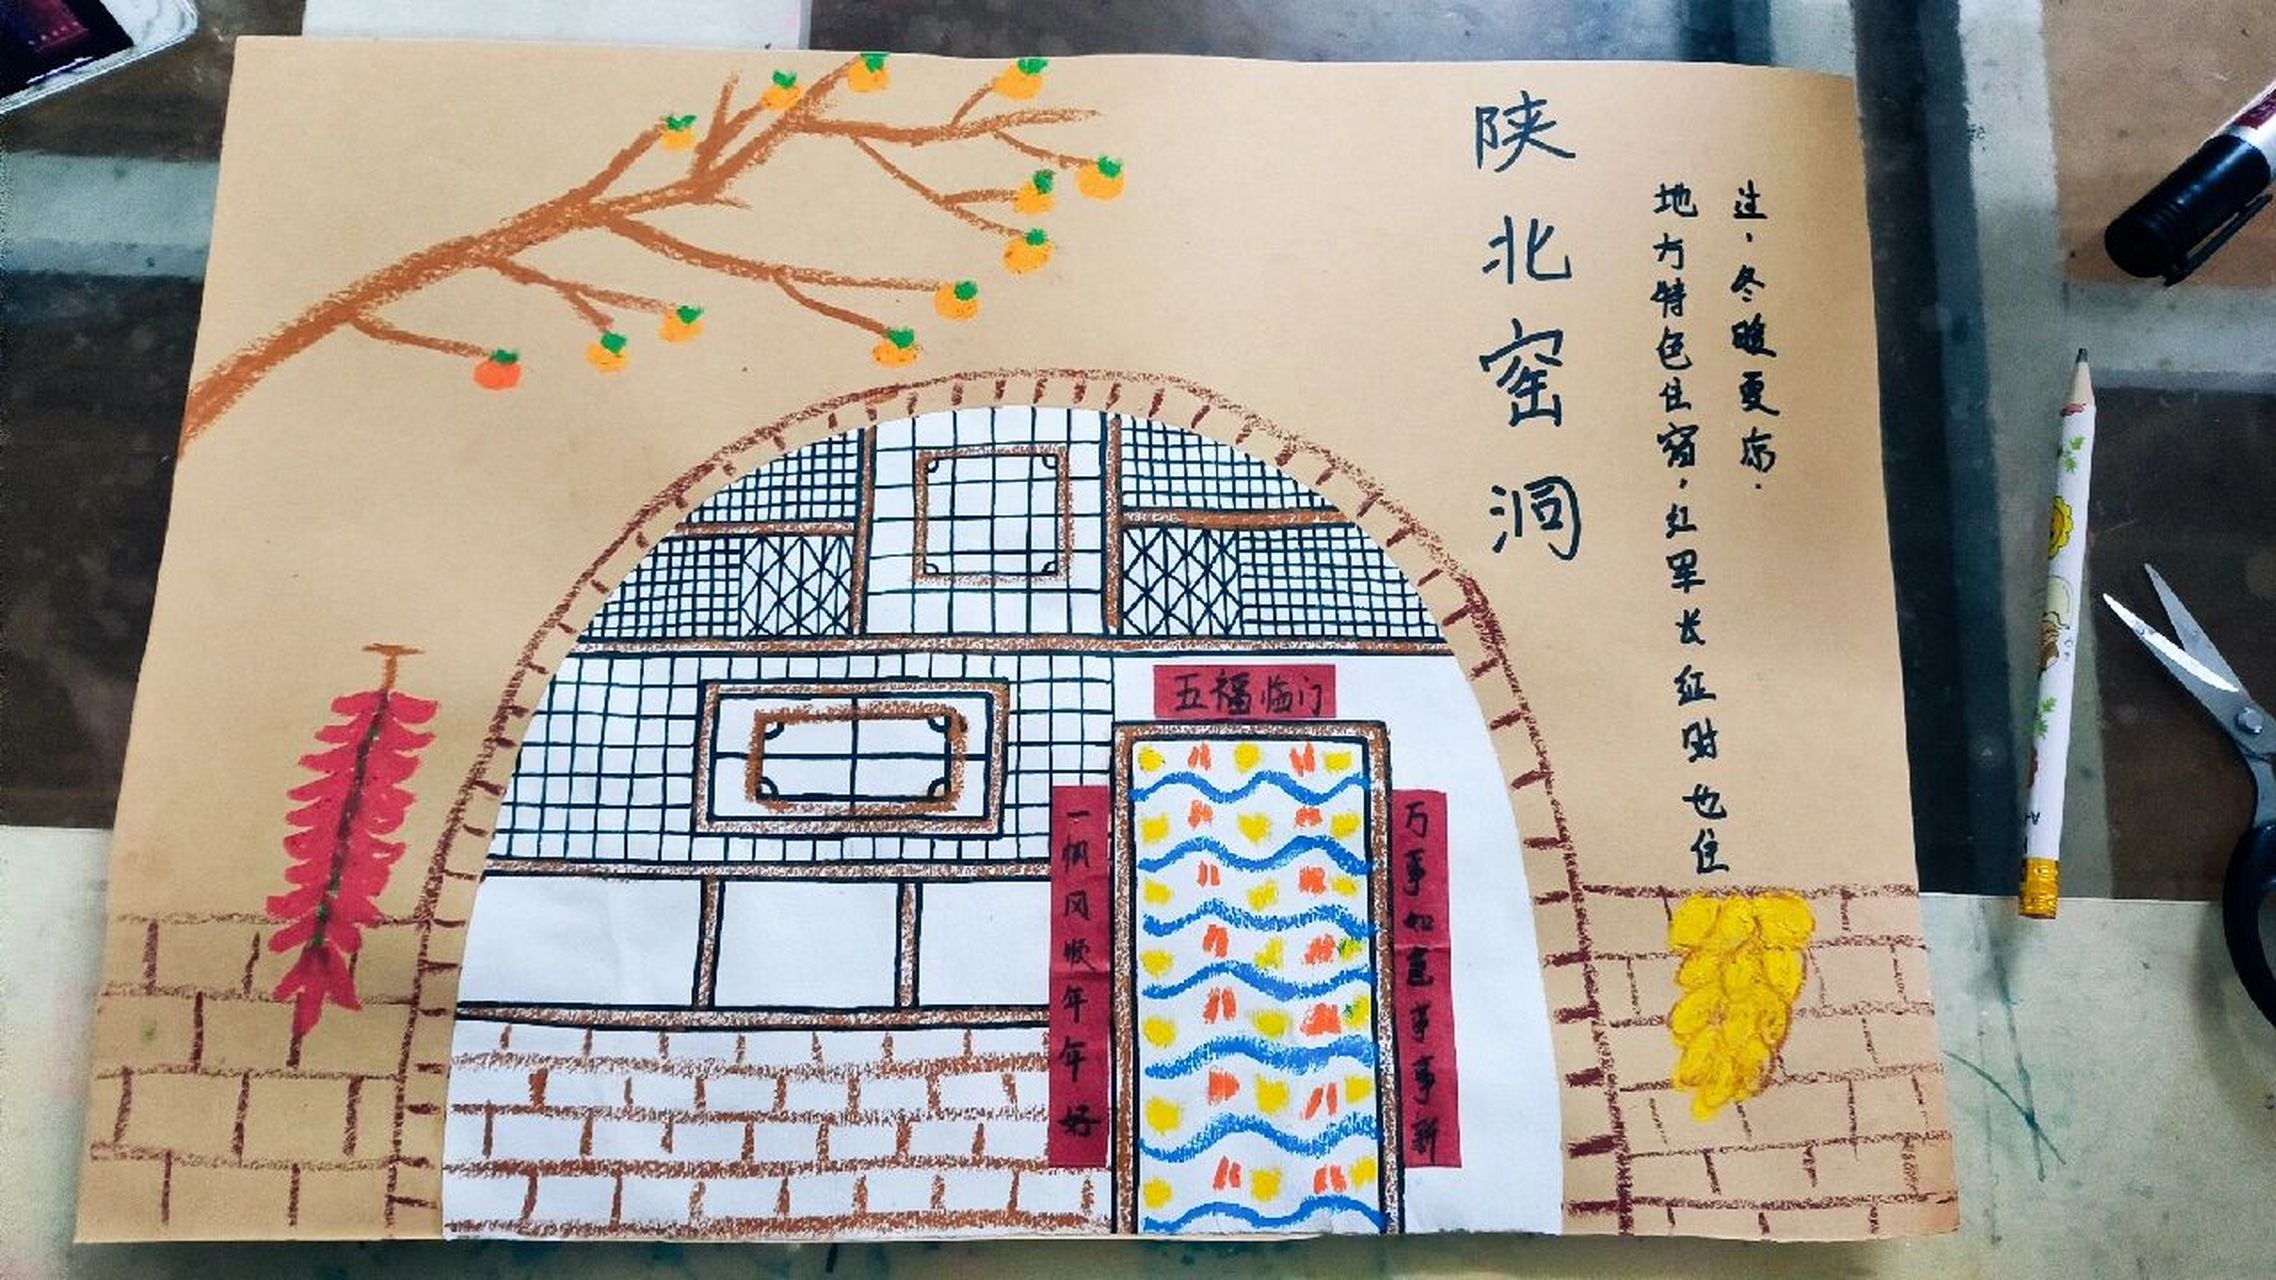 陕北窑洞
地方特色住宿，红军长征时也住
过，冬暖夏凉．
五福临门
一帆风顺年年好
万事如意事事新